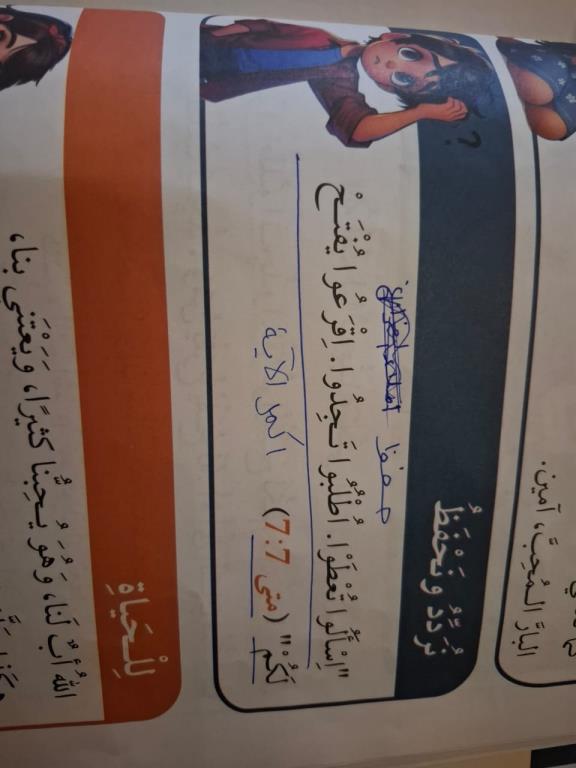 البارّ الـمُحِبّ، آمين.
نُرَدِّدُ وَنَحْفَظُ
؟
حفظ
"اِسْأَلُوا تُعْطَوْا. اُطْلُبُوا تَـجِدُوا. اِقْرَعُوا يُفْتَحْ
لَكُمْ" (متى 7:7)
اكمل الآية
لِلْحَيَاةِ
اللهُ أَبٌ لَنا، وَهُوَ يُـحِبُّنا كثيرًا، وَيَعْتَني بنا،